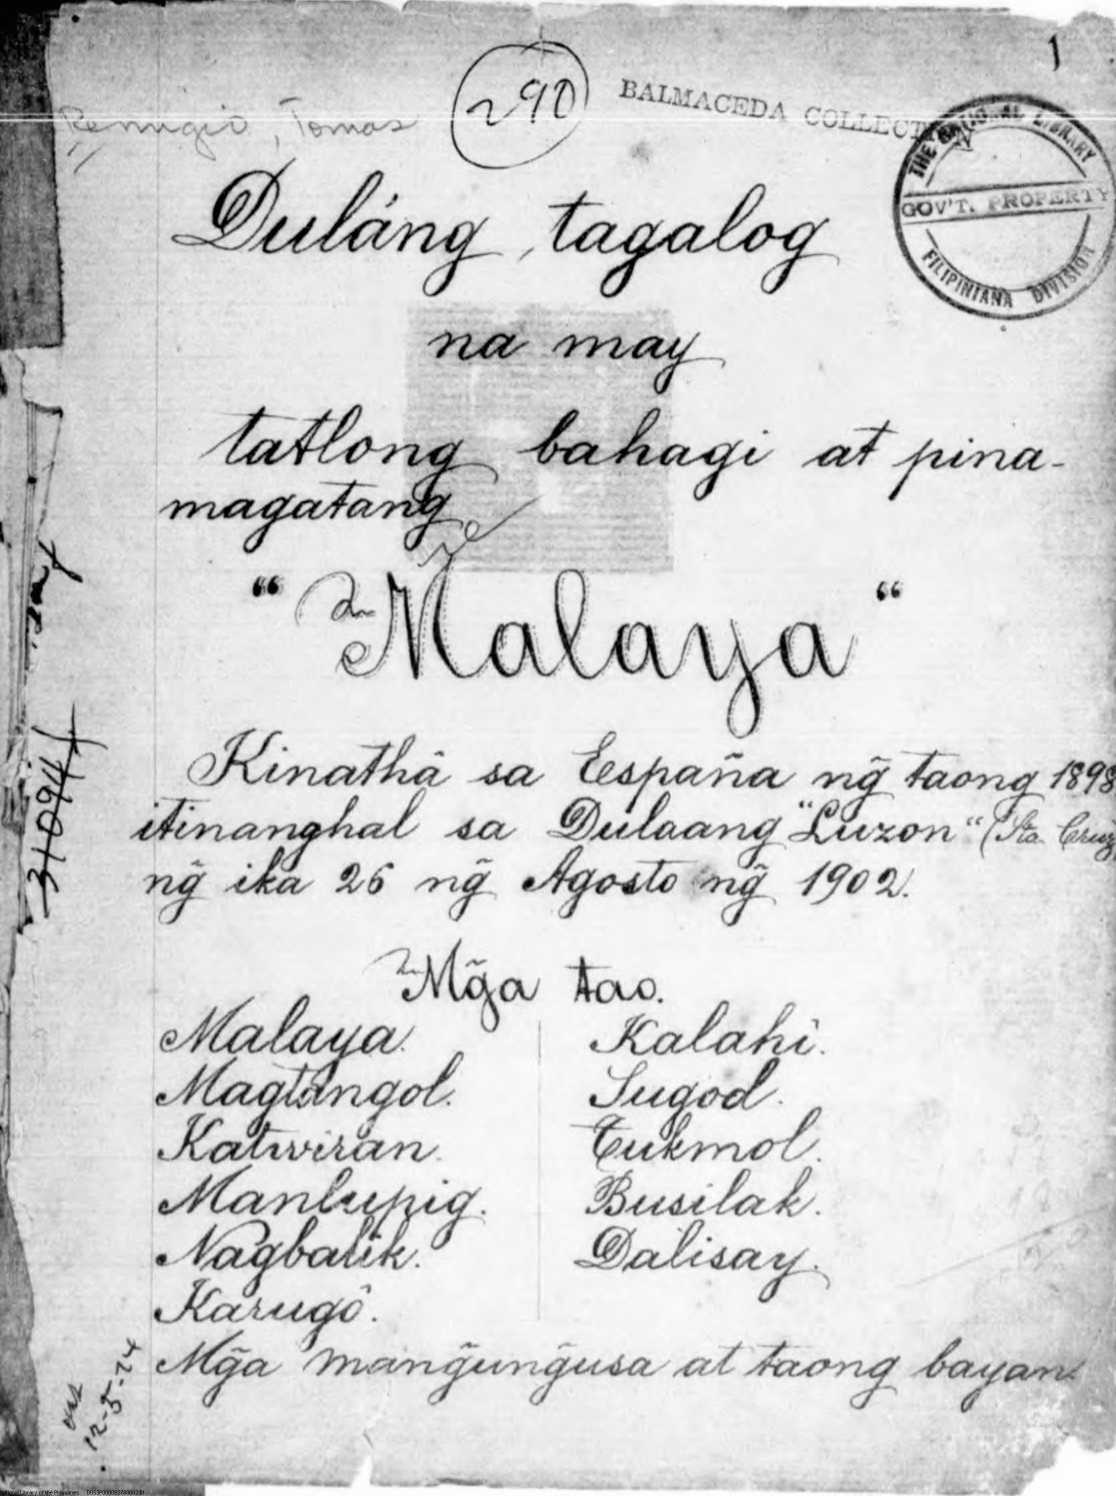 1
290
BALMACEDA COLLECTION
Remigio, Tomas
THE NATIONAL LIBRARY
GOV'T. PROPERTY
FILIPINIANA DIVISION
Duláng tagalog
na may
tatlong bahagi at pina-
magatang
"Malaya"
Kinathâ sa España ng̃ taong 1898
itinanghal sa Dulaang "Luzon" (Sta. Cruz
ng̃ ika 26 ng̃ Agosto ng̃ 1902.
31094
Mg̃a tao.
Malaya. Kalahi.
Magtangol. Sugod.
Katwiran. Tukmol.
Manlupig. Busilak.
Nagbalik. Dalisay.
Karugô.
Mg̃a mang̃ung̃usa at taong bayan.
12-5-74